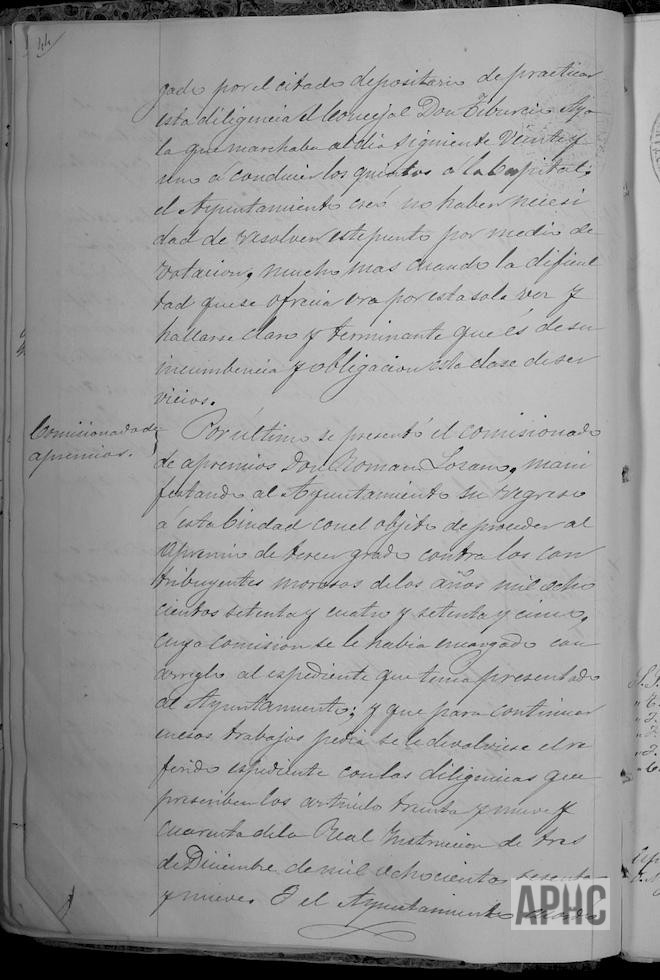 44
gado por el citado depositario de practicar
esta diligencia el Concejal Don Tiburcio Aya
la que marchaba al dia siguiente Veinte y
uno a conducir los quintos á la Capital;
el Ayuntamiento creó no haber necesi
dad de resolver este punto por medio de
votacion, mucho mas cuando la dificul
tad que se ofrecia era por esta sola vez y
hallarse claro y terminante que és de su
incumbencia y obligacion esta clase de ser
vicios.
Comisionado de
apremios.
Por último se presentó el comisionado
de apremios Don Roman Lozano, mani
festando al Ayuntamiento su regreso
á esta Ciudad con el objeto de proceder al
apremio de tercer grado contra los con
tribuyentes morosos de los años mil ocho
cientos setenta y cuatro y setenta y cinco,
cuya comision se le habia encargado con
arreglo al espediente que tenia presentado
al Ayuntamiento; y que para continuar
en esos trabajos pedia se le devolviese el re
ferido espediente con las diligencias que
prescriben los articulo treinta y nueve y
cuarenta de la Real Instruccion de tres
de Diciembre de mil ochocientos sesenta
y nueve. Y el Ayuntamiento acordó
APHC